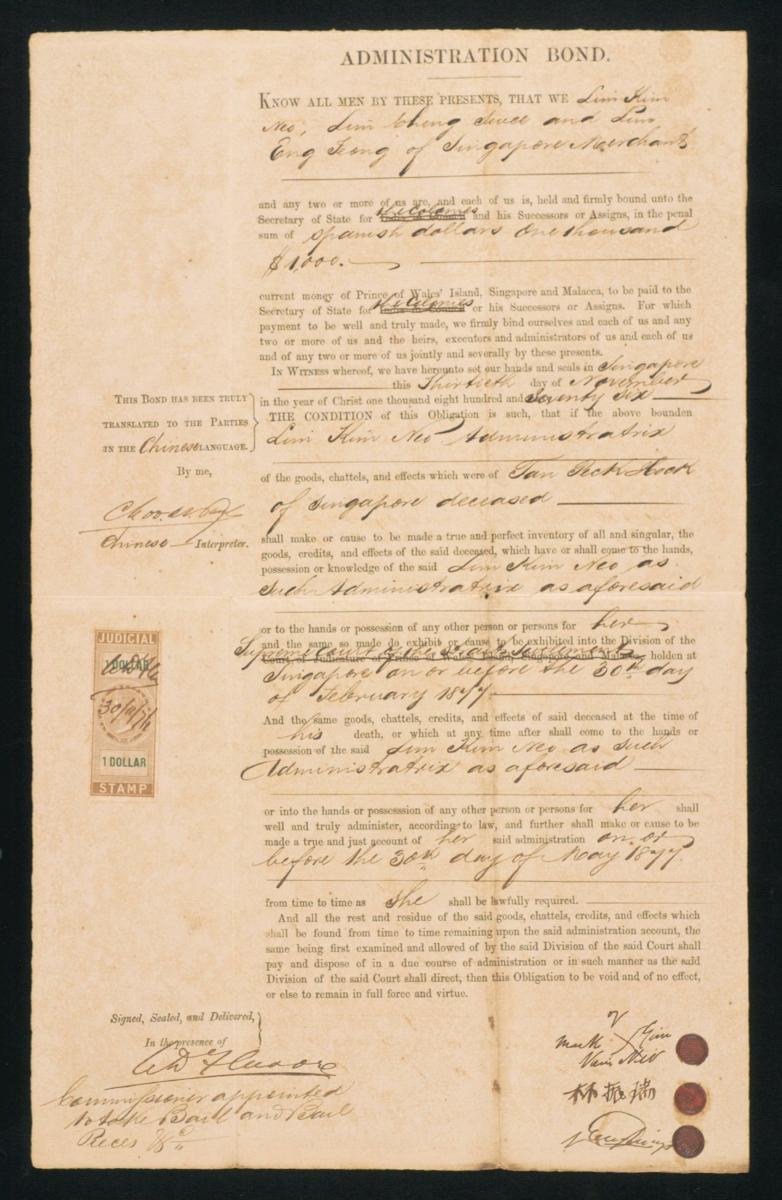 ADMINISTRATION BOND.
KNOW ALL MEN BY THESE PRESENTS, THAT WE Lim Kim
Neo, Lim Cheng and Lim
Eng of Singapore Merchants
and any two or more of us are, and each of us is, held and firmly bound unto the
Secretary of State for the Colonies and his Successors or Assigns, in the penal
sum of Spanish dollars One thousand
$1,000.—
current money of Prince of Wales' Island, Singapore and Malacca, to be paid to the
Secretary of State for the Colonies or his Successors or Assigns. For which
payment to be well and truly made, we firmly bind ourselves and each of us and any
two or more of us and the heirs, executors and administrators of us and each of us
and of any two or more of us jointly and severally by these presents.
IN WITNESS whereof, we have hereunto set our hands and seals in Singapore
this Thirtieth day of November
in the year of Christ one thousand eight hundred and Seventy Six
THE CONDITION of this Obligation is such, that if the above bounden
Lim Kim Neo Administratrix
THIS BOND HAS BEEN TRULY
TRANSLATED TO THE PARTIES
IN THE Chinese LANGUAGE.
By me,
Chinese Interpreter.
of the goods, chattels, and effects which were of Tan Peck Hock
of Singapore deceased
shall make or cause to be made a true and perfect inventory of all and singular, the
goods, credits, and effects of the said deceased, which have or shall come to the hands,
possession or knowledge of the said Lim Kim Neo as
Such Administratrix as aforesaid
or to the hands or possession of any other person or persons for her
and the same so made do exhibit or cause to be exhibited into the Division of the
Supreme Court of the Straits Settlements holden at
Court of Judicature of Prince of Wales' Island, Singapore and Malacca,
Singapore on or before the 30th day
of February 1877
And the same goods, chattels, credits, and effects of said deceased at the time of
his death, or which at any time after shall come to the hands or
possession of the said Lim Kim Neo as Such
Administratrix as aforesaid
or into the hands or possesssion of any other person or persons for her shall
well and truly administer, according to law, and further shall make or cause to be
made a true and just account of her said administration on or
before the 30th day of May 1877.
from time to time as she shall be lawfully required.
And all the rest and residue of the said goods, chattels, credits, and effects which
shall be found from time to time remaining upon the said administration account, the
same being first examined and allowed of by the said Division of the said Court shall
pay and dispose of in a due course of administration or in such manner as the said
Division of the said Court shall direct, then this Obligation to be void and of no effect,
or else to remain in full force and virtue.
JUDICIAL
1 DOLLAR
30/11/76
1 DOLLAR
STAMP
Signed, Sealed, and Delivered,
In the presence of
Commissioner appointed
to take Bail and Bail
Pieces &c
of
mark X Lim
Kim Neo
林振瑞